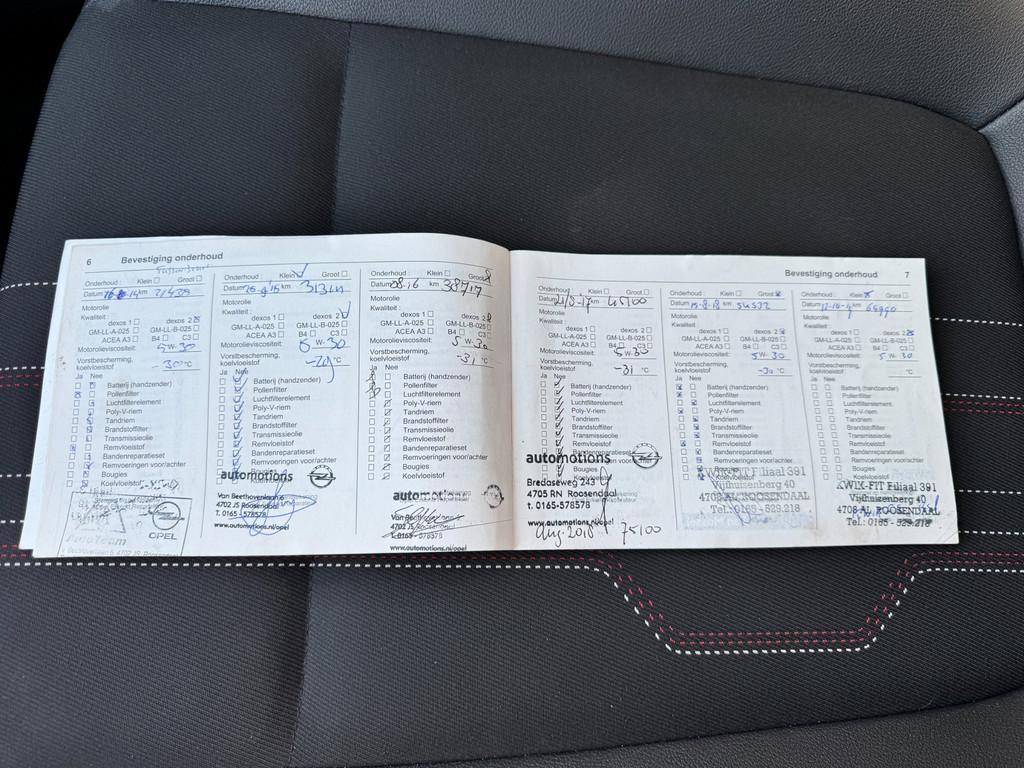 6 Bevestiging onderhoud
Onderhoud : Klein Groot
Datum km 21438
Motorolie
Kwaliteit :
dexos 1 dexos 2
GM-LL-A-025 GM-LL-B-025
ACEA A3 B4 C3
Motorolieviscositeit: 5 W-30
Vorstbescherming,
koelvloeistof -30 °C
Ja Nee
Batterij (handzender)
Pollenfilter
Luchtfilterelement
Poly-V-riem
Tandriem
Brandstoffilter
Transmissieolie
Remvloeistof
Bandenreparatieset
Remvoeringen voor/achter
Bougies
Koelvloeistof
OPEL
AutoTeam
4702 JS Roosendaal
Onderhoud : Klein Groot
Datum km
Motorolie
Kwaliteit :
dexos 1 dexos 2
GM-LL-A-025 GM-LL-B-025
ACEA A3 B4 C3
Motorolieviscositeit: 5 W-30
Vorstbescherming,
koelvloeistof °C
Ja Nee
Batterij (handzender)
Pollenfilter
Luchtfilterelement
Poly-V-riem
Tandriem
Brandstoffilter
Transmissieolie
Remvloeistof
Bandenreparatieset
Remvoeringen voor/achter
Bougies
automotions
Van Beethovenlaan 6
4702 JS Roosendaal
t. 0165-578578
www.automotions.nl/opel
Onderhoud : Klein Groot
Datum 08-16 km 38717
Motorolie
Kwaliteit :
dexos 1 dexos 2
GM-LL-A-025 GM-LL-B-025
ACEA A3 B4 C3
Motorolieviscositeit: 5 W-30
Vorstbescherming,
koelvloeistof -31 °C
Ja Nee
Batterij (handzender)
Pollenfilter
Luchtfilterelement
Poly-V-riem
Tandriem
Brandstoffilter
Transmissieolie
Remvloeistof
Bandenreparatieset
Remvoeringen voor/achter
Bougies
Koelvloeistof
automotions
T. 0165-578578
www.automotions.nl/opel
Bevestiging onderhoud 7
Onderhoud : Klein Groot
Datum km 45100
Motorolie
Kwaliteit :
dexos 1 dexos 2
GM-LL-A-025 GM-LL-B-025
ACEA A3 B4 C3
Motorolieviscositeit: 5 W-30
Vorstbescherming,
koelvloeistof -31 °C
Ja Nee
Batterij (handzender)
Pollenfilter
Luchtfilterelement
Poly-V-riem
Tandriem
Brandstoffilter
Transmissieolie
Remvloeistof
Bandenreparatieset
Remvoeringen voor/achter
Bougies
automotions
Bredaseweg 243
4705 RN Roosendaal
t. 0165-578578
www.automotions.nl/opel
Aug. 2018 75100
Onderhoud : Klein Groot
Datum km 54532
Motorolie
Kwaliteit :
dexos 1 dexos 2
GM-LL-A-025 GM-LL-B-025
ACEA A3 B4 C3
Motorolieviscositeit: 5 W-30
Vorstbescherming,
koelvloeistof -30 °C
Ja Nee
Batterij (handzender)
Pollenfilter
Luchtfilterelement
Poly-V-riem
Tandriem
Brandstoffilter
Transmissieolie
Remvloeistof
Bandenreparatieset
Remvoeringen voor/achter
Bougies
KWIK-FIT Filiaal 391
Vijfhuizenberg 40
4708 AL ROOSENDAAL
Tel.: 0165 - 529.218
Onderhoud : Klein Groot
Datum km
Motorolie
Kwaliteit :
dexos 1 dexos 2
GM-LL-A-025 GM-LL-B-025
ACEA A3 B4 C3
Motorolieviscositeit: 5 W-30
Vorstbescherming,
koelvloeistof °C
Ja Nee
Batterij (handzender)
Pollenfilter
Luchtfilterelement
Poly-V-riem
Tandriem
Brandstoffilter
Transmissieolie
Remvloeistof
Bandenreparatieset
Remvoeringen voor/achter
Bougies
Koelvloeistof
KWIK-FIT Filiaal 391
Vijfhuizenberg 40
4708 AL ROOSENDAAL
Tel.: 0165 - 529.218